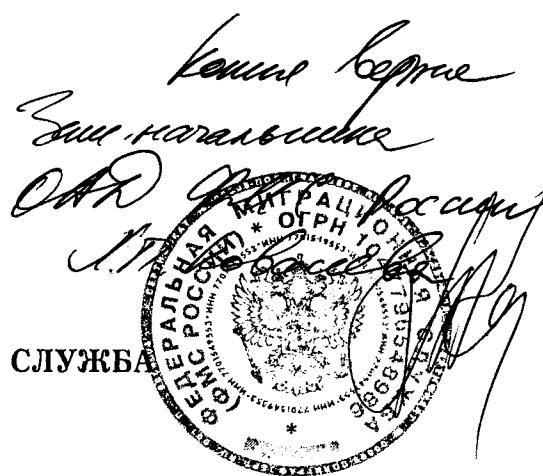 Копия верна
Зам. начальника
ОАД ФМС России
СЛУЖБА
ФЕДЕРАЛЬНАЯ МИГРАЦИОННАЯ СЛУЖБА
(ФМС РОССИИ) * ОГРН
ИНН 7701549553